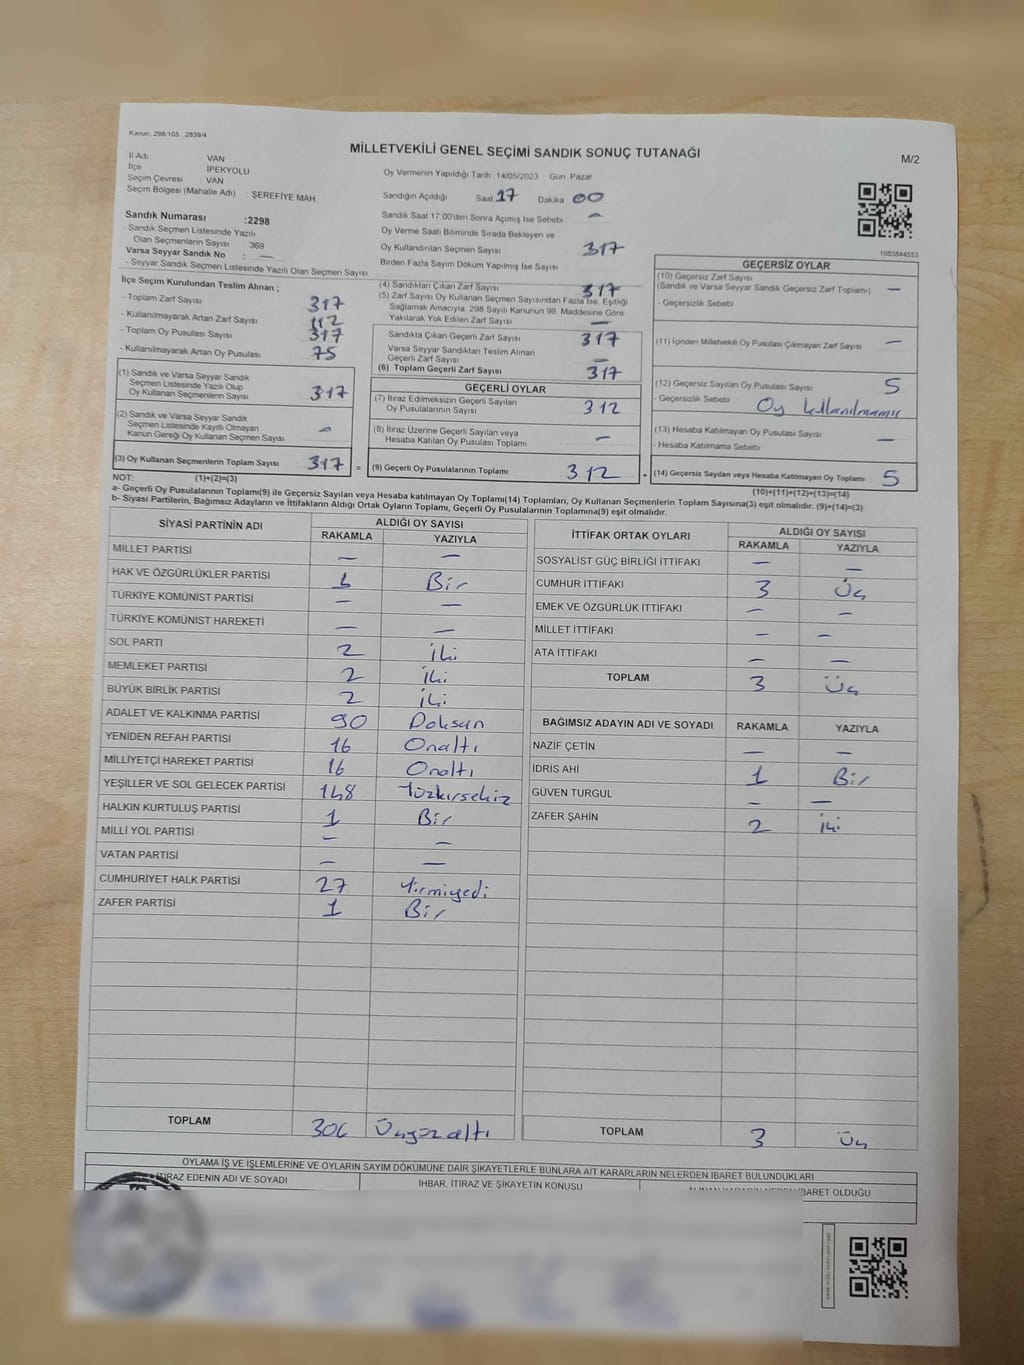 Kanun: 298/105 , 2839/4
MİLLETVEKİLİ GENEL SEÇİMİ SANDIK SONUÇ TUTANAĞI
M/2
İl Adı VAN
İlçe İPEKYOLU
Seçim Çevresi : VAN
Seçim Bölgesi (Mahalle Adı) : ŞEREFİYE MAH.
Sandık Numarası :2298
- Sandık Seçmen Listesinde Yazılı
Olan Seçmenlerin Sayısı : 369
Varsa Seyyar Sandık No : —
- Seyyar Sandık Seçmen Listesinde Yazılı Olan Seçmen Sayısı
Oy Vermenin Yapıldığı Tarih 14/05/2023 Gün Pazar
Sandığın Açıldığı Saat 17 Dakika 00
Sandık Saat 17:00'den Sonra Açımış İse Sebebi : —
Oy Verme Saati Bitiminde Sırada Bekleyen ve
Oy Kullandırılan Seçmen Sayısı 317
Birden Fazla Sayım Döküm Yapılmış İse Sayısı
1083844553
İlçe Seçim Kurulundan Teslim Alınan ;
- Toplam Zarf Sayısı 317
- Kullanılmayarak Artan Zarf Sayısı 112
- Toplam Oy Pusulası Sayısı 317
- Kullanılmayarak Artan Oy Pusulası 75
(1) Sandık ve Varsa Seyyar Sandık
Seçmen Listesinde Yazılı Olup
Oy Kullanan Seçmenlerin Sayısı 317
(2) Sandık ve Varsa Seyyar Sandık
Seçmen Listesinde Kayıtlı Olmayan
Kanun Gereği Oy Kullanan Seçmen Sayısı —
(3) Oy Kullanan Seçmenlerin Toplam Sayısı 317 =
(4) Sandıktan Çıkan Zarf Sayısı 317
(5) Zarf Sayısı Oy Kullanan Seçmen Sayısından Fazla İse, Eşitliği
Sağlamak Amacıyla, 298 Sayılı Kanunun 98. Maddesine Göre
Yakılarak Yok Edilen Zarf Sayısı —
Sandıkta Çıkan Geçerli Zarf Sayısı 317
Varsa Seyyar Sandıktan Teslim Alınan
Geçerli Zarf Sayısı —
(6) Toplam Geçerli Zarf Sayısı 317
GEÇERLİ OYLAR
(7) İtiraz Edilmeksizin Geçerli Sayılan
Oy Pusulalarının Sayısı 312
(8) İtiraz Üzerine Geçerli Sayılan veya
Hesaba Katılan Oy Pusulası Toplamı —
(9) Geçerli Oy Pusulalarının Toplamı 312 +
GEÇERSİZ OYLAR
(10) Geçersiz Zarf Sayısı
(Sandık ve Varsa Seyyar Sandık Geçersiz Zarf Toplamı) —
- Geçersizlik Sebebi
(11) İçinden Milletvekili Oy Pusulası Çıkmayan Zarf Sayısı —
(12) Geçersiz Sayılan Oy Pusulası Sayısı 5
- Geçersizlik Sebebi : Oy kullanılmamış
(13) Hesaba Katılmayan Oy Pusulası Sayısı —
- Hesaba Katılmama Sebebi
(14) Geçersiz Sayılan veya Hesaba Katılmayan Oy Toplamı 5
NOT: (1)+(2)=(3) (10)+(11)+(12)+(13)=(14)
a- Geçerli Oy Pusulalarının Toplamı(9) ile Geçersiz Sayılan veya Hesaba katılmayan Oy Toplamı(14) Toplamları, Oy Kullanan Seçmenlerin Toplam Sayısına(3) eşit olmalıdır. (9)+(14)=(3)
b- Siyasi Partilerin, Bağımsız Adayların ve İttifakların Aldığı Ortak Oyların Toplamı, Geçerli Oy Pusulalarının Toplamına(9) eşit olmalıdır.
SİYASİ PARTİNİN ADI ALDIĞI OY SAYISI
RAKAMLA YAZIYLA
MİLLET PARTİSİ — —
HAK VE ÖZGÜRLÜKLER PARTİSİ 1 Bir
TÜRKİYE KOMÜNİST PARTİSİ — —
TÜRKİYE KOMÜNİST HAREKETİ — —
SOL PARTİ 2 İki
MEMLEKET PARTİSİ 2 İki
BÜYÜK BİRLİK PARTİSİ 2 İki
ADALET VE KALKINMA PARTİSİ 90 Doksan
YENİDEN REFAH PARTİSİ 16 Onaltı
MİLLİYETÇİ HAREKET PARTİSİ 16 Onaltı
YEŞİLLER VE SOL GELECEK PARTİSİ 148 Yüzkırsekiz
HALKIN KURTULUŞ PARTİSİ 1 Bir
MİLLİ YOL PARTİSİ — —
VATAN PARTİSİ — —
CUMHURİYET HALK PARTİSİ 27 Yirmiyedi
ZAFER PARTİSİ 1 Bir
TOPLAM 306 Üçyüzaltı
İTTİFAK ORTAK OYLARI ALDIĞI OY SAYISI
RAKAMLA YAZIYLA
SOSYALİST GÜÇ BİRLİĞİ İTTİFAKI — —
CUMHUR İTTİFAKI 3 Üç
EMEK VE ÖZGÜRLÜK İTTİFAKI — —
MİLLET İTTİFAKI — —
ATA İTTİFAKI — —
TOPLAM 3 Üç
BAĞIMSIZ ADAYIN ADI VE SOYADI RAKAMLA YAZIYLA
NAZİF ÇETİN — —
İDRİS AHİ 1 Bir
GÜVEN TURGUL — —
ZAFER ŞAHİN 2 İki
TOPLAM 3 Üç
OYLAMA İŞ VE İŞLEMLERİNE VE OYLARIN SAYIM DÖKÜMÜNE DAİR ŞİKAYETLERLE BUNLARA AİT KARARLARIN NELERDEN İBARET BULUNDUKLARI
İTİRAZ EDENİN ADI VE SOYADI İHBAR, İTİRAZ VE ŞİKAYETİN KONUSU ALINAN KARARIN NEDEN İBARET OLDUĞU